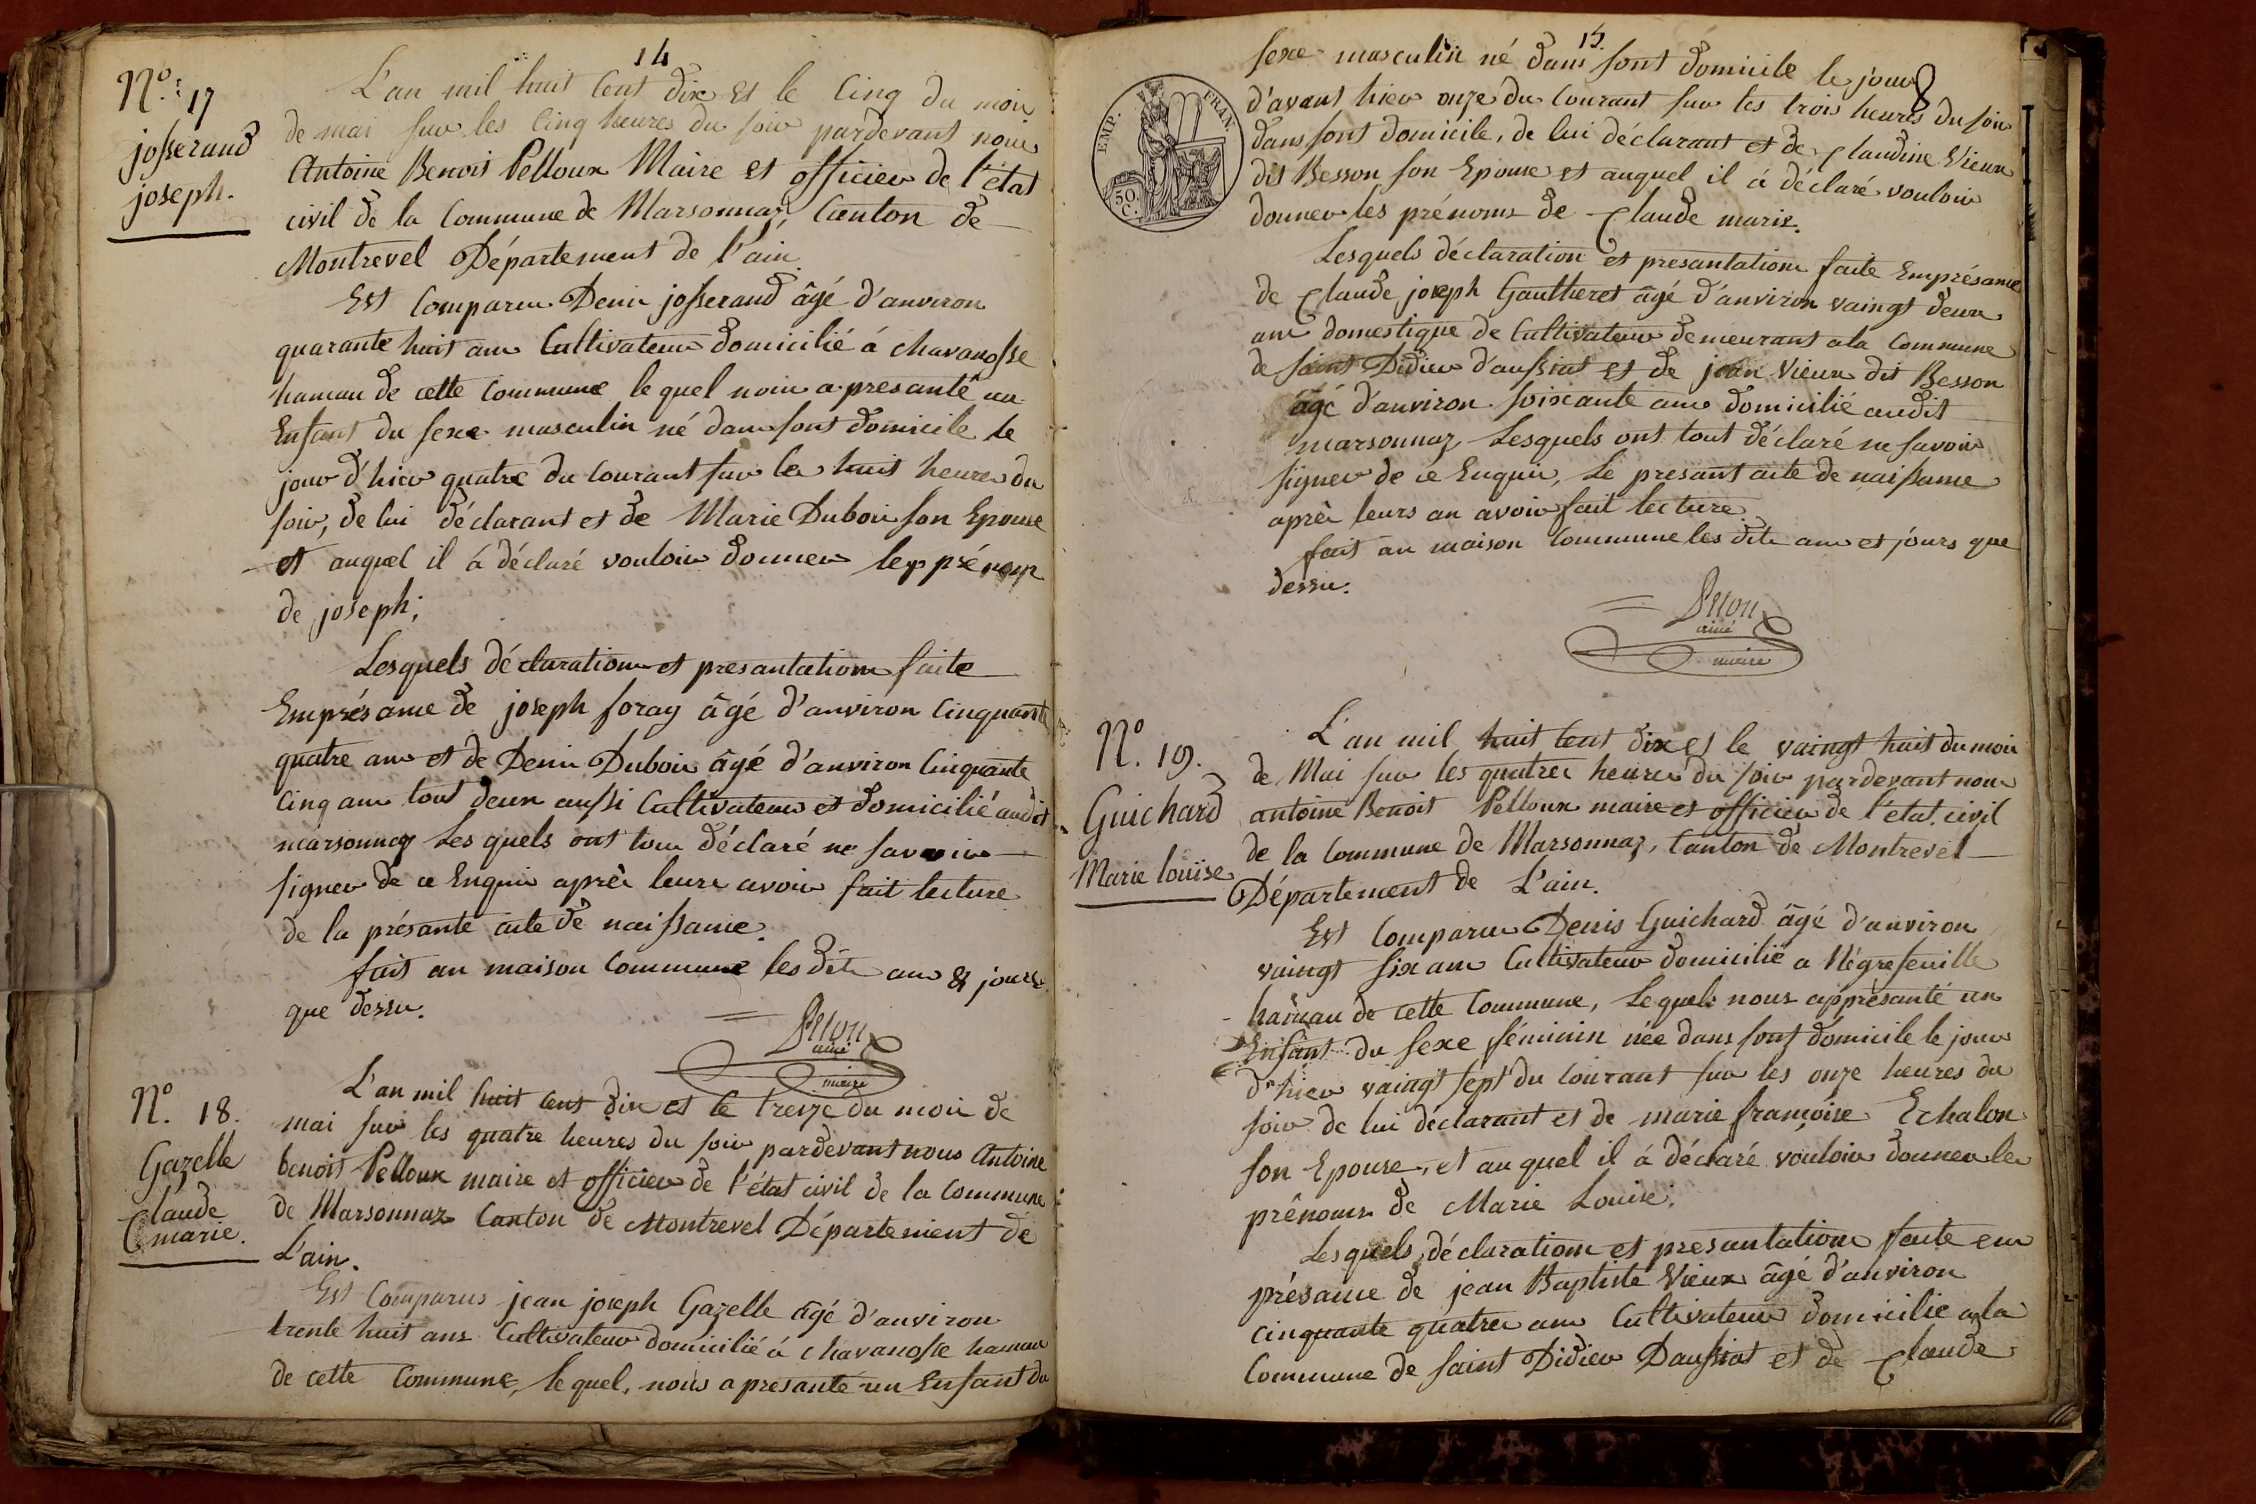 14
N.º 17
josserand
joseph.
L'an mil huit Cent dix et le Cinq du mois
de mai sur les Cinq heures du soir pardevant nous
Antoine Benois Pelloux Maire et officier de l'état
civil de la Commune de Marsonnaz, Canton de
Montrevel Département de l'ain
Est Comparu Denis josserand âgé d'anviron
quarante huit ans Cultivateur domicilié á chavanosse
hamau de cette Commune le quel nous a presanté un
Enfant du sexe masculin né dans sont domicile le
jour d'hier quatre du Courant sur les huit heures du
soir, de lui déclarant et de Marie Dubois son Epouse
et auquel il á déclaré vouloir donner les prénoms
de joseph;
Lesquels déclarations et presantations faite
Emprésance de joseph foray âgé d'anviron Cinquante
quatre ans et de Denis Dubois âgé d'anviron Cinquante
Cinq ans tout deux aussi Cultivateurs et domicilié audit
marsonnaz Les quels ont tous déclaré ne savoir
signer de ce Enquis après leurs avoir fait lecture
de la présante acte de naissance.
fait an maison Commune les dits ans & jours
que dessu.
Pelloux
ainé
maire
N.º 18.
Gazelle
Claude
marie.
L'an mil huit cent dix et le treize du mois de
mai sur les quatre heures du soir pardevant nous Antoine
benois Pelloux maire et officier de l'état civil de la Commune
de Marsonnaz Canton de Montrevel Département de
L'ain.
Est Comparus jean joseph Gazelle âgé d'anviron
trente huit ans Cultivateur domicilié á chavanosse hamau
de cette Commune, le quel, nous a presanté un Enfant du
15.
EMP. FRAN.
50 C.
sexe masculin né dans sont domicile le jour
d'avant hier onze du Courant sur les trois heures du soir
dans sont domicile, de lui déclarant et de Claudine Vieux
dit Besson son Epouse et auquel il á déclaré vouloir
donner les prénoms de Claude marie.
Lesquels déclaration et presantations faite Emprésance
de Claude joseph Gaultieret âgé d'anviron vaingt deux
ans domestique de Cultivateur demeurant ala Commune
de saint Didier d'aussiat et de jean Vieux dit Besson
âgé d'anviron soixante ans domicilié audit
marsonnaz Lesquels ont tout déclaré ne savoir
signer de ce Enquis, Le presant acte de naissance
après leurs an avoir fait lecture
fait an maison Commune les dits ans et jours que
dessu.
Pelloux
ainé
maire
N.º 19.
Guichard
Marie louise
L'an mil huit Cent dix et le vaingt huit du mois
de Mai sur les quatres heures du soir pardevant nous
antoine Benoit Pelloux maire et officier de l'état civil
de la Commune de Marsonnaz, Canton de Montrevel
Département de L'ain.
Est Comparu Denis Guichard âgé d'anviron
vaingt six ans Cultivateur domicilié a Négrefeuille
hamau de cette Commune, Le quel nous apprèsanté un
Enfant du sexe féminin née dans sont domicile le jour
d'hier vaingt sept du Courant sur les onze heures du
soir de lui déclarant et de marie françoise Echalon
son Epouse, et au quel il á déclaré vouloir donner les
prénoms de Marie Louise.
Les quels déclarations et presantations faite en
présance de jean Baptiste Vieux âgé d'anviron
cinquante quatres ans Cultivateur domicilie ala
Commune de saint Didier Daussiat et de Claude